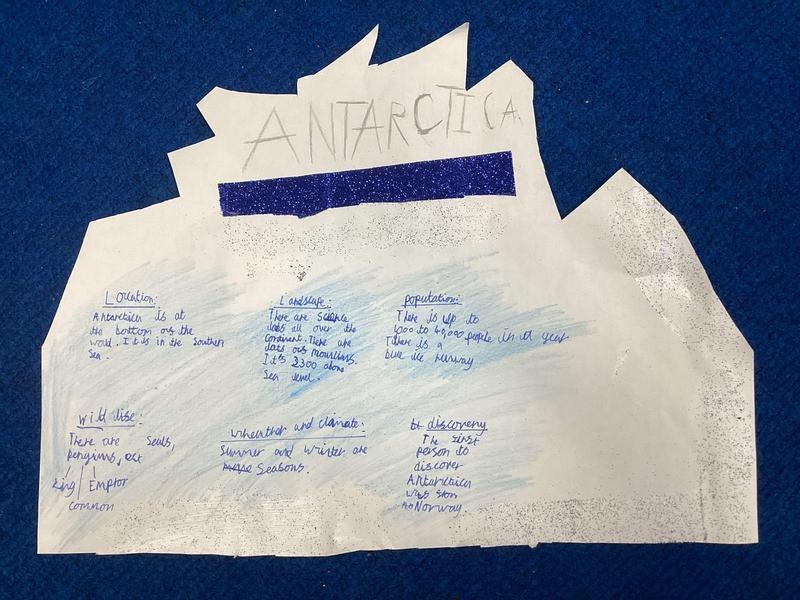 ANTARCTICA
Location:
Antarctica is at
the bottom ovs the
world. It is in the Southern
Sea.
Landscape:
There are science
labs all over the
continent. There are
lots ovs mountians.
It is 2,300 above
Sea level.
population:
There is up to
1,000 to 40,000 people in a year
There is a
blue ice runway
wild lise:
There are seals,
penguins, ect
King Emptor
common
wheather and climate:
Summer and winter are
Seasons.
discovery
The first
person to
discover
Antarctica
was from
Norway.